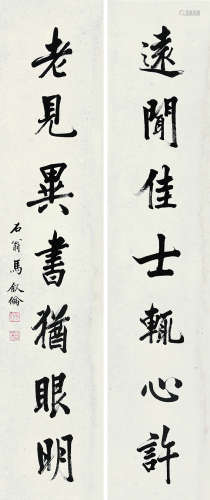 遠聞佳士輒心許
老見異書猶眼明
石翁馬叙倫